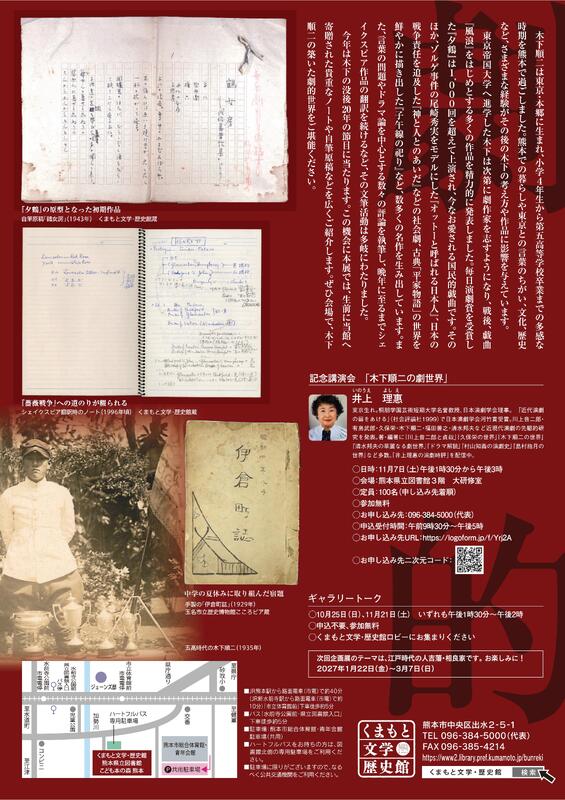 木下順二は東京・本郷に生まれ、小学4年生から第五高等学校卒業までの多感な
時期を熊本で過ごしました。熊本での暮らしや東京との言葉のちがい、文化、歴史
など、さまざまな経験がその後の木下の考え方や作品に影響を与えています。
東京帝国大学へ進学した木下は次第に劇作家を志すようになり、戦後、戯曲
『風浪』をはじめとする多くの作品を精力的に発表しました。毎日演劇賞を受賞し
た『夕鶴』は1,000回を超えて上演され、今なお愛される国民的戯曲です。その
ほか、ゾルゲ事件の尾崎秀実をモデルにした『オットーと呼ばれる日本人』、日本の
戦争責任を追及した『神と人とのあいだ』などの社会劇、古典『平家物語』の世界を
鮮やかに描き出した『子午線の祀り』など、数多くの名作を生み出しています。ま
た、言葉の問題やドラマ論を中心とする数々の評論を執筆し、晩年に至るまでシェ
イクスピア作品の翻訳を続けるなど、その文筆活動は多岐にわたりました。
今年は木下の没後20年の節目に当たります。この機会に本展では、生前に当館へ
寄贈された貴重なノートや自筆原稿などを広くご紹介します。ぜひ会場で、木下
順二の築いた劇的世界をご堪能ください。
鶴女房
『夕鶴』の原型となった初期作品
自筆原稿「鶴女房」(1943年) くまもと文学・歴史館蔵
「薔薇戦争」への道のりが綴られる
シェイクスピア翻訳時のノート(1996年頃) くまもと文学・歴史館蔵
伊倉町誌
中学の夏休みに取り組んだ宿題
手製の「伊倉町誌」(1929年)
玉名市立歴史博物館こころピア蔵
五高時代の木下順二(1935年)
記念講演会 「木下順二の劇世界」
いのうえ よしえ
井上 理惠
東京生れ。桐朋学園芸術短期大学名誉教授、日本演劇学会理事。『近代演劇
の扉をあける』(社会評論社1999)で日本演劇学会河竹賞受賞。川上音二郎・
有島武郎・久保栄・木下順二・福田善之・清水邦夫など近現代演劇の先駆的研
究を発表。著・編書に『川上音二郎と貞奴』『久保栄の世界』『木下順二の世界』
『清水邦夫の華麗なる劇世界』、『ドラマ解読』『村山知義の演劇史』『島村抱月の
世界』など多数。「井上理惠の演劇時評」を配信中。
○日時:11月7日(土)午後1時30分から午後3時
○会場:熊本県立図書館3階 大研修室
○定員:100名(申し込み先着順)
○参加無料
○お申し込み先:096-384-5000(代表)
○申込受付時間:午前9時30分〜午後5時
○お申し込み先URL:https://logoform.jp/f/Yrj2A
○お申し込み先二次元コード:
ギャラリートーク
○10月25日(日)、11月21日(土) いずれも午後1時30分〜午後2時
○申込不要、参加無料
○くまもと文学・歴史館ロビーにお集まりください
次回企画展のテーマは、江戸時代の人吉藩・相良家です。お楽しみに!
2027年1月22日(金)〜3月7日(日)
ジェーンズ邸
ハートフルパス
専用駐車場
くまもと文学・歴史館
熊本県立図書館
こども本の森 熊本
熊本市総合体育館・
青年会館
共用駐車場
コンビニ
交番
加勢川
至水道町
至江津
至健軍
砂取小
県庁通り
■JR熊本駅から路面電車(市電)で約40分
(JR新水前寺駅から路面電車(市電)で約
10分)「市立体育館前」下車徒歩約5分
■バス「水前寺公園前・県立図書館入口」
下車徒歩約5分
■駐車場:熊本市総合体育館・青年会館
駐車場(共用)
■ハートフルパスをお持ちの方は、図
書館北側の専用駐車場をご利用くだ
さい。
■駐車場に限りがございますので、なる
べく公共交通機関をご利用ください。
くまもと
文学
歴史館
熊本市中央区出水2-5-1
TEL 096-384-5000(代表)
FAX 096-385-4214
https://www2.library.pref.kumamoto.jp/bunreki
くまもと文学・歴史館 検索
的